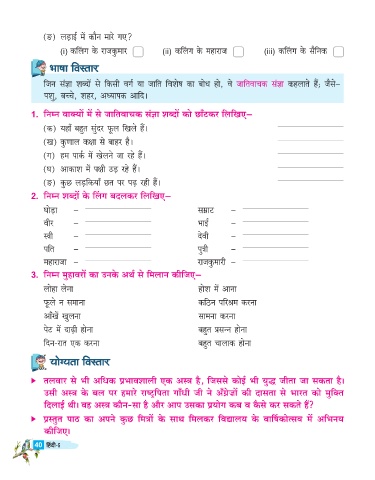 (ङ) लड़ाई में कौन मारे गए?
(i) कलिंग के राजकुमार (ii) कलिंग के महाराज (iii) कलिंग के सैनिक
भाषा विस्तार
जिन संज्ञा शब्दों से किसी वर्ग या जाति विशेष का बोध हो, वे जातिवाचक संज्ञा कहलाते हैं; जैसे–
पशु, बच्चे, शहर, अध्यापक आदि।
1. निम्न वाक्यों में से जातिवाचक संज्ञा शब्दों को छाँटकर लिखिए–
(क) यहाँ बहुत सुंदर फूल खिले हैं।
(ख) कुणाल कक्षा से बाहर है।
(ग) हम पार्क में खेलने जा रहे हैं।
(घ) आकाश में पक्षी उड़ रहे हैं।
(ङ) कुछ लड़कियाँ छत पर पढ़ रही हैं।
2. निम्न शब्दों के लिंग बदलकर लिखिए–
घोड़ा – सम्राट –
वीर – भाई –
स्त्री – देवी –
पति – पुत्री –
महाराजा – राजकुमारी –
3. निम्न मुहावरों का उनके अर्थ से मिलान कीजिए–
लोहा लेना होश में आना
फूले न समाना कठिन परिश्रम करना
आँखें खुलना सामना करना
पेट में दाढ़ी होना बहुत प्रसन्न होना
दिन-रात एक करना बहुत चालाक होना
योग्यता विस्तार
तलवार से भी अधिक प्रभावशाली एक अस्त्र है, जिससे कोई भी युद्ध जीता जा सकता है।
उसी अस्त्र के बल पर हमारे राष्ट्रपिता गाँधी जी ने अँग्रेजों की दासता से भारत को मुक्ति
दिलाई थी। वह अस्त्र कौन-सा है और आप उसका प्रयोग कब व कैसे कर सकते हैं?
प्रस्तुत पाठ का अपने कुछ मित्रों के साथ मिलकर विद्यालय के वार्षिकोत्सव में अभिनय
कीजिए।
40 हिंदी-5